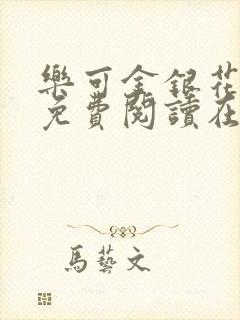 樂可金銀花
免費閱讀在
馬藝文